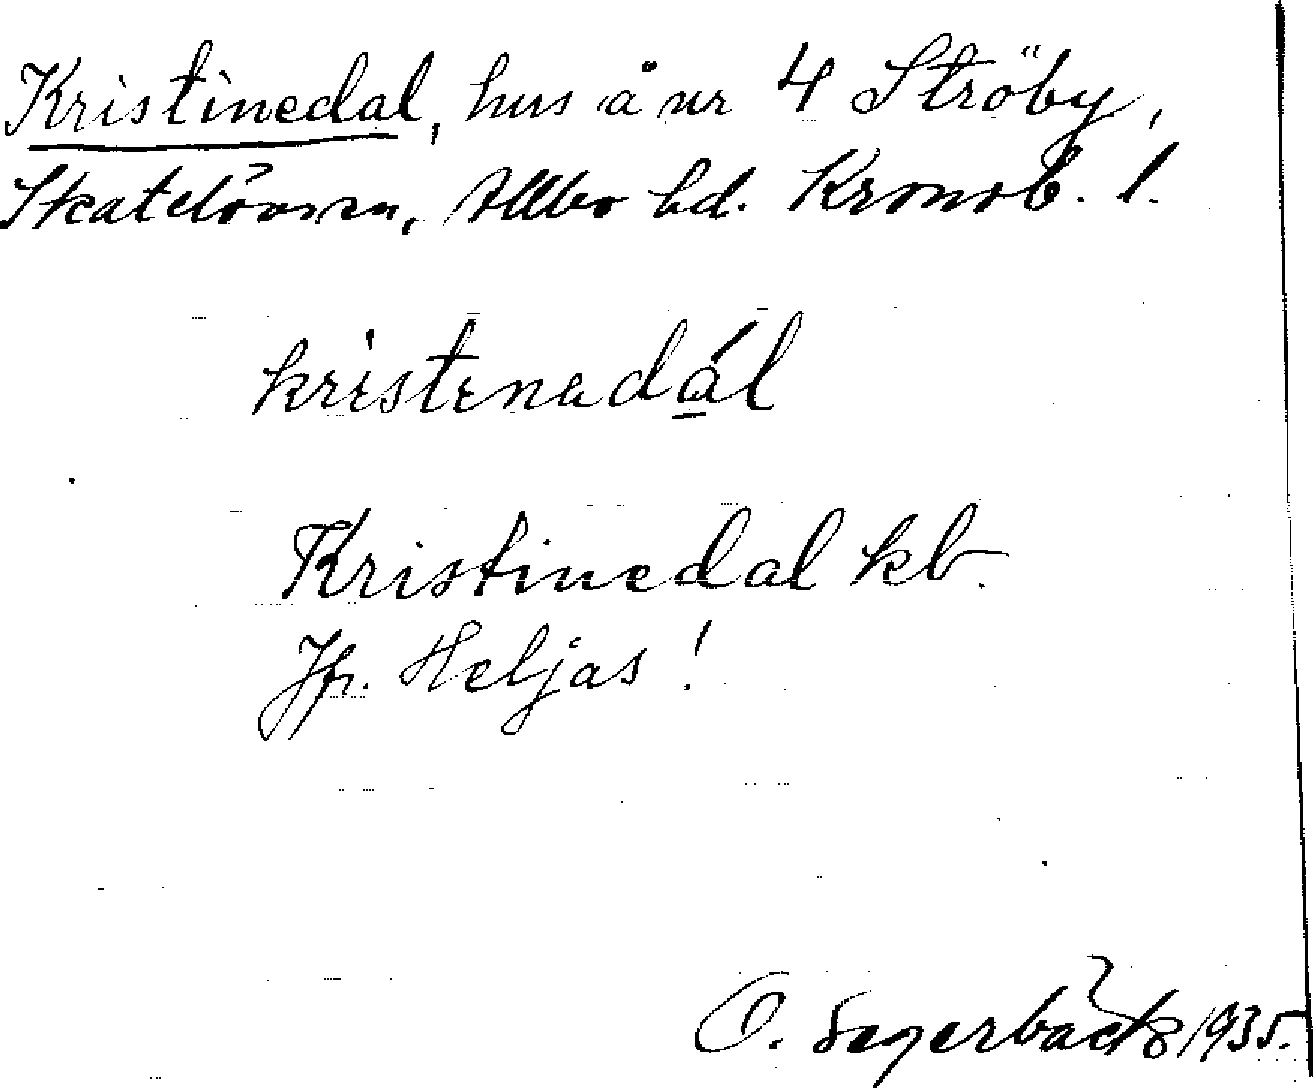 Kristinedal, hus å nr 4 Ströby,
Skatelövs sn, Allbo hd. Kronob. l.
kristenadál
Kristinedal kb.
Jfr. Heljas!
O. Segerbäck 1935.